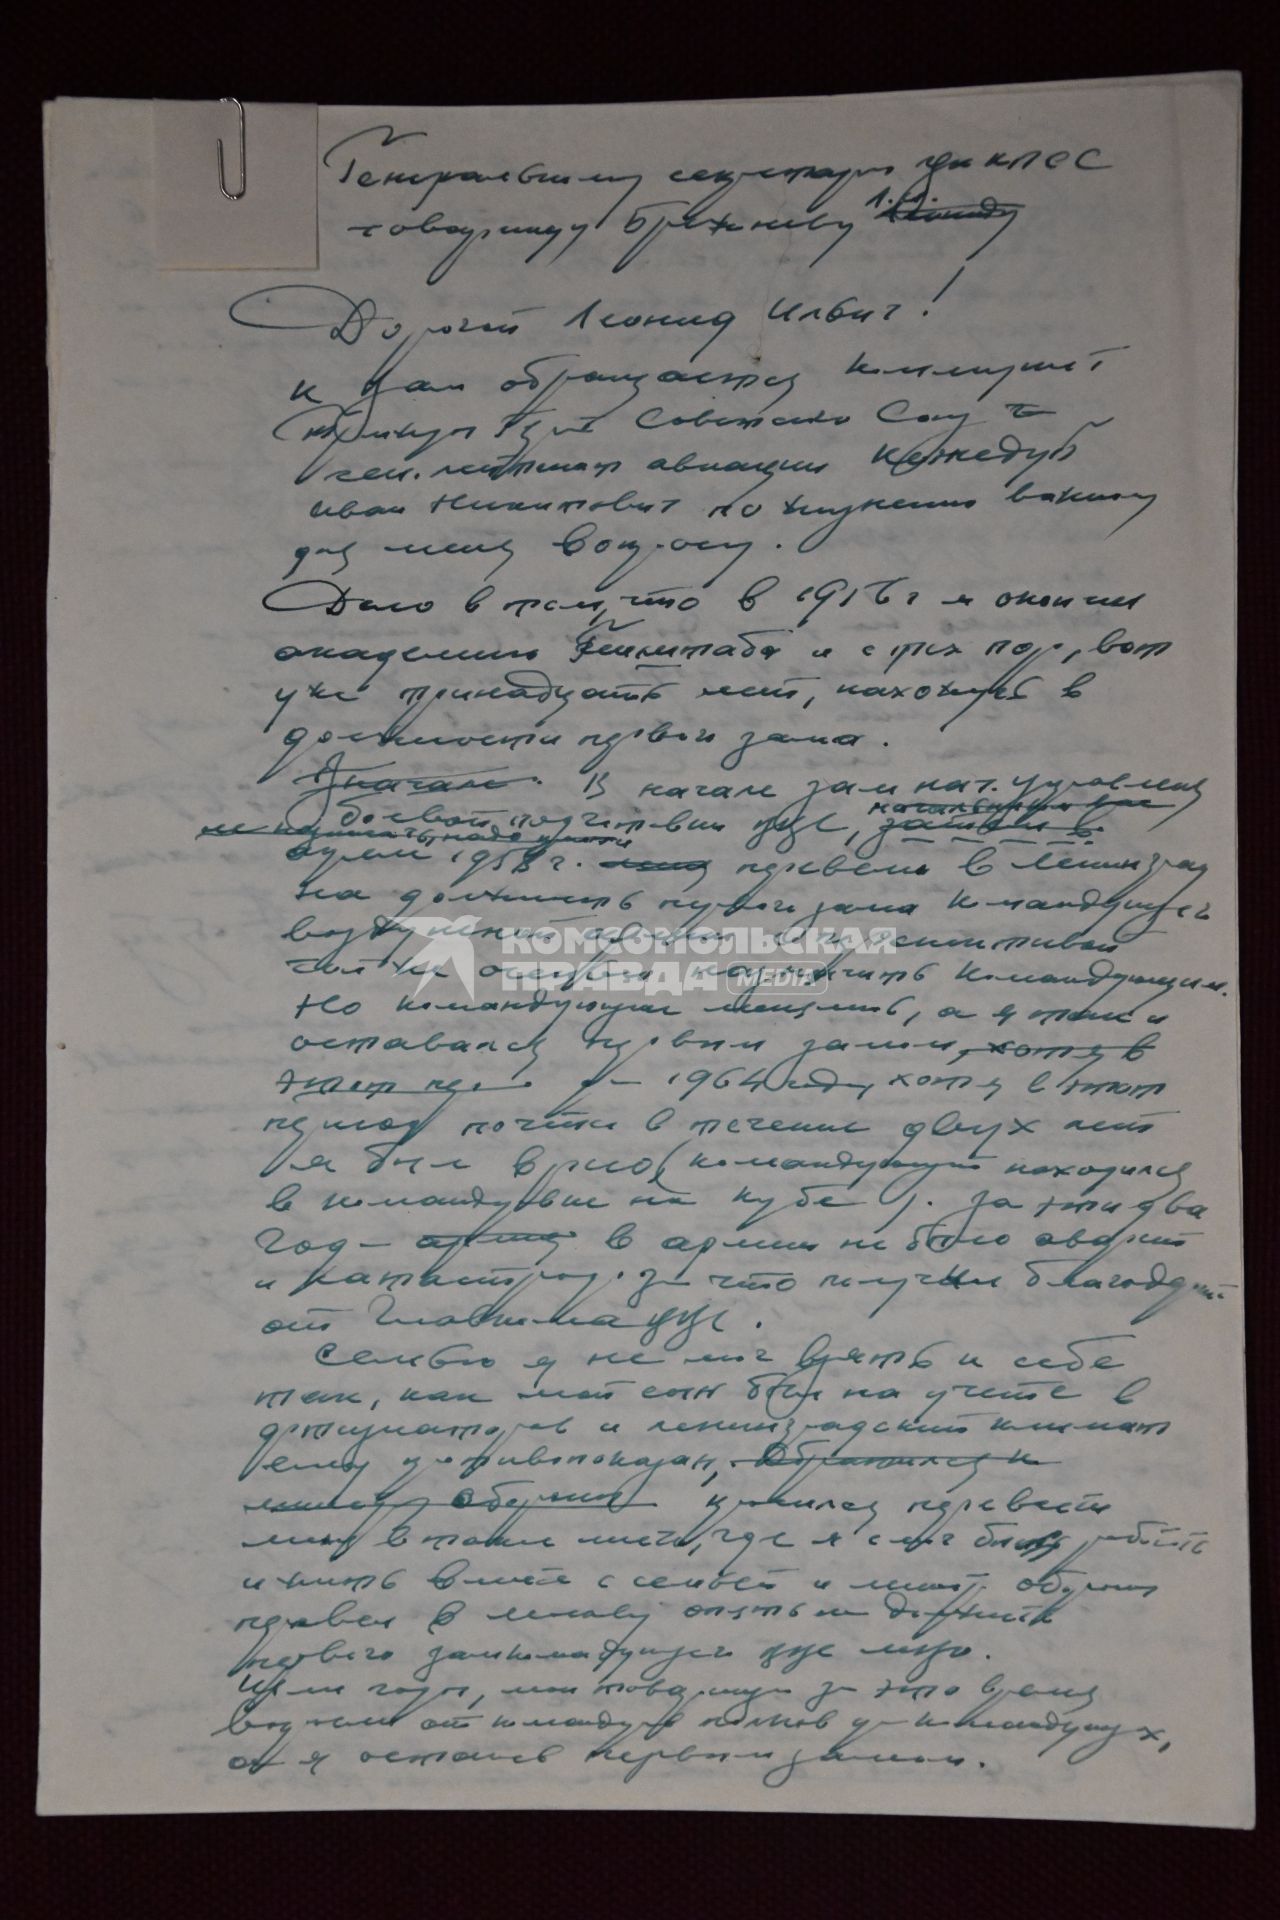 Генеральному секретарю ЦК КПСС
товарищу Брежневу Л.И.
Дорогой Леонид Ильич!
К Вам обращается коммунист
трижды Герой Советского Союза
ген. лейтенант авиации Кожедуб
Иван Никитович по жизненно важному
для меня вопросу.
Дело в том, что в 1956 г я окончил
академию Генштаба и с тех пор, вот
уже тринадцать лет, нахожусь в
должности первого зама.
В начале зам нач. управления
боевой подготовки ВВС,
1958 г. перевели в Ленинград
на должность первого зама командующего
воздушной армии с перспективой
назначить командующим.
Но командующие менялись, а я так и
оставался первым замом, хотя в
этот пер до 1964 году, хотя в этот
период почти в течение двух лет
я был врио (командующий находился
в командировке на Кубе). За эти два
года в армии не было аварий
и катастроф. за что получил благодарн.
от Главкома ВВС.
Семью я не мог взять к себе
так, как мой сын был на учете в
и ленинградский климат
ему противопоказан,
просился перевести
меня в такое место, где я смог бы работать
и жить вместе с семьей и мин. обороны
перевел в Москву опять на должность
первого замкомандующего ВВС МВО.
Шли годы, мои товарищи за это время
выросли от командиров полков до командующих,
а я остаюсь первым замом.
КОМСОМОЛЬСКАЯ
ПРАВДА MEDIA